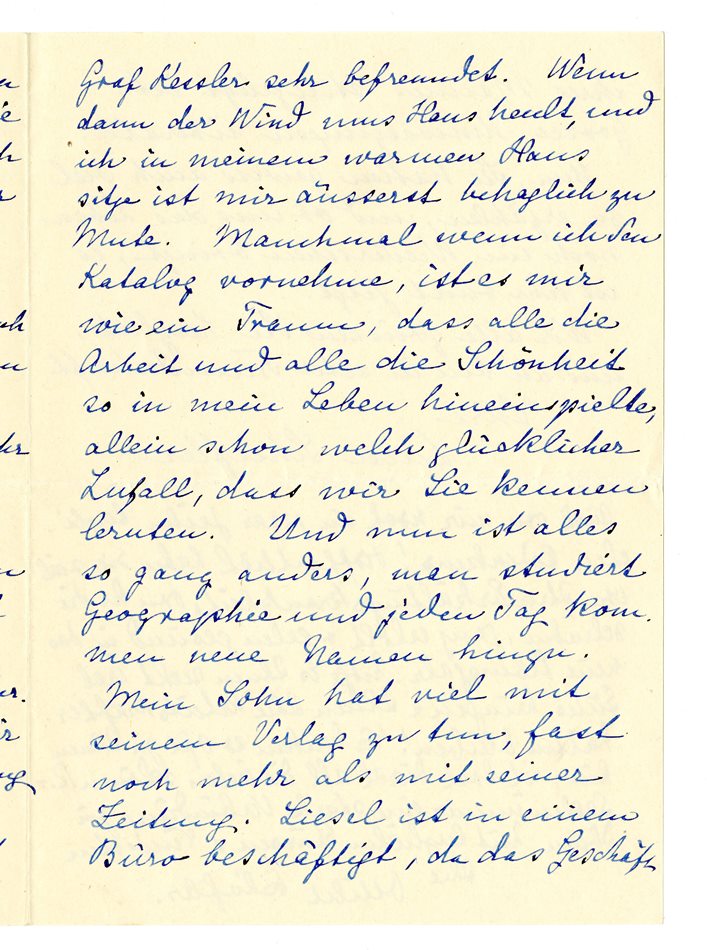 Graf Kessler sehr befreundet. Wenn
dann der Wind ums Haus heult, und
ich in meinem warmen Haus
sitze ist mir äusserst behaglich zu
Mute. Manchmal wenn ich den
Katalog vornehme, ist es mir
wie ein Traum, dass alle die
Arbeit und alle die Schönheit
so in mein Leben hineinspielte,
allein schon welch glücklicher
Zufall, dass wir Sie kennen
lernten. Und nun ist alles
so ganz anders, man studiert
Geographie und jeden Tag kom-
men neue Namen hinzu.
Mein Sohn hat viel mit
seinem Verlag zu tun, fast
noch mehr als mit seiner
Zeitung. Liesel ist in einem
Büro beschäftigt, da das Geschäft